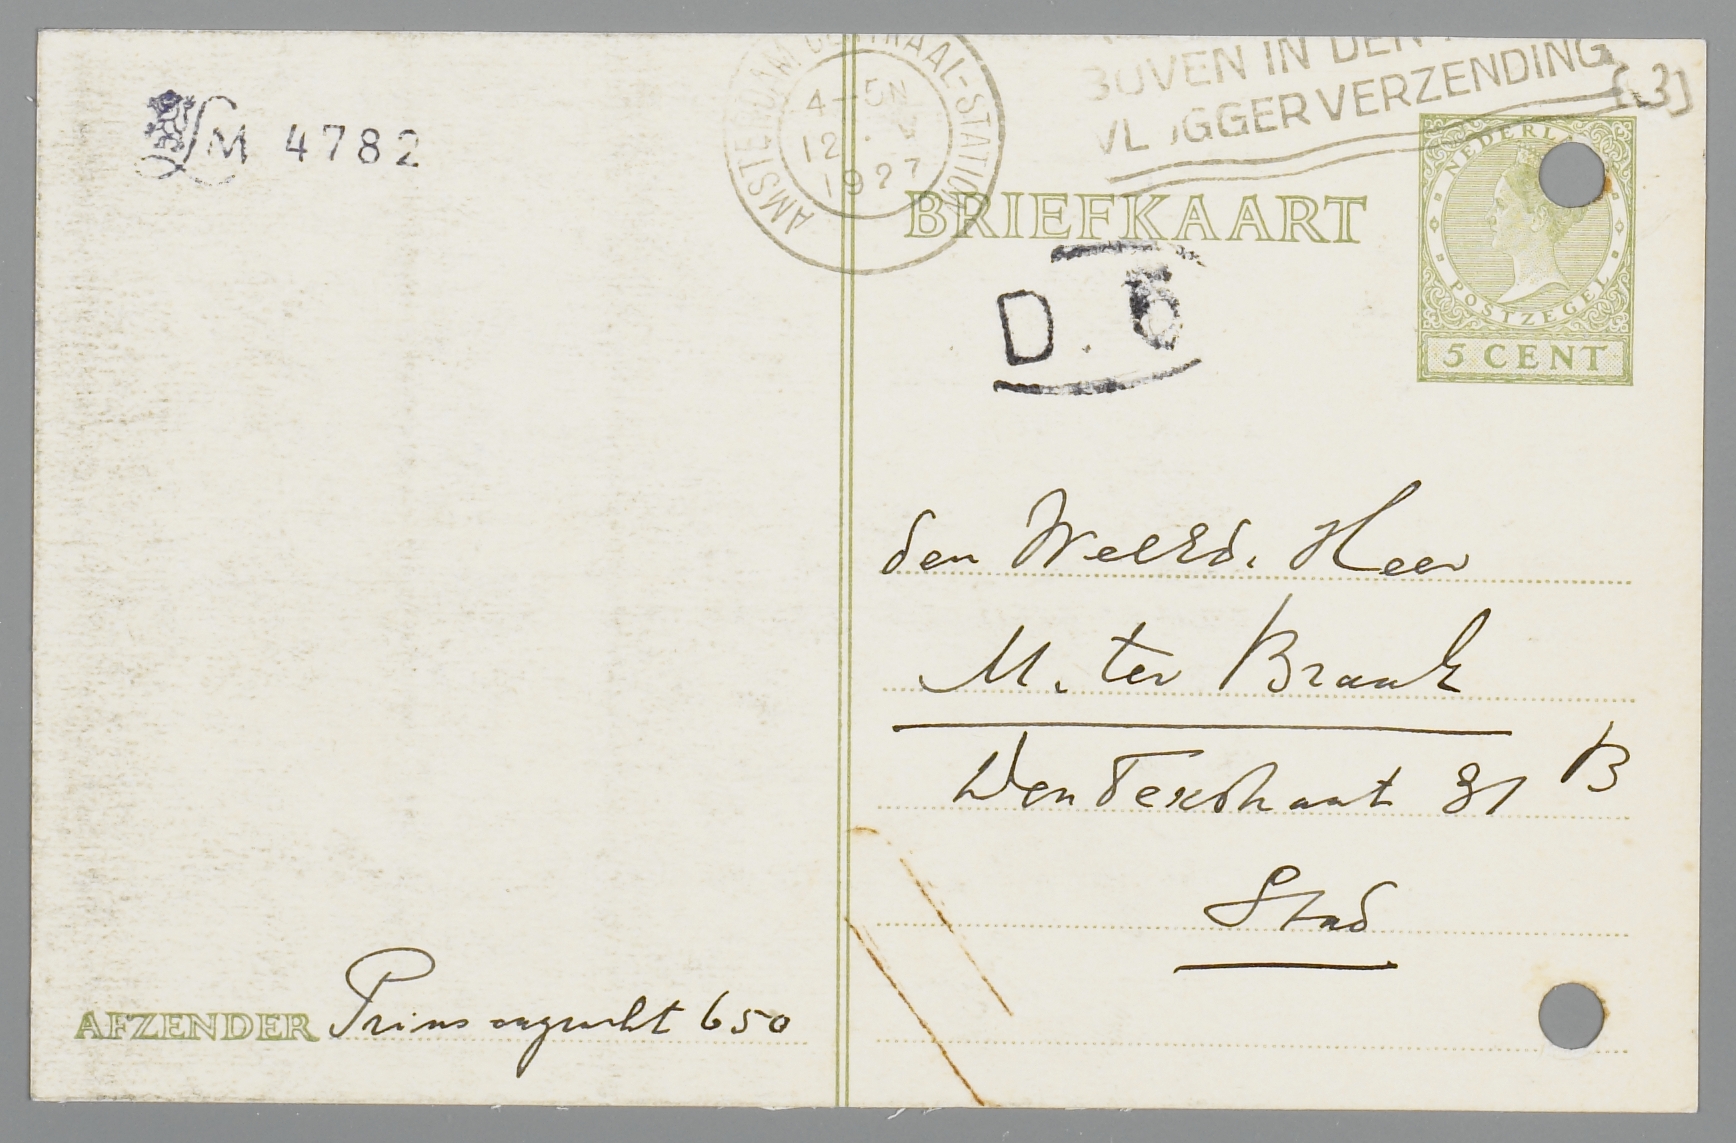 LM 4782
AMSTERDAM CENTRAAL-STATION
4-5N
12 . V
1927
BOVEN IN DEN
VLUGGER VERZENDING
{3}
BRIEFKAART
NEDERL
POSTZEGEL
5 CENT
D. 6
den WelEd. Heer
M. ter Braak
Den Texstraat 31 B
Stad
AFZENDER Prinsengracht 650